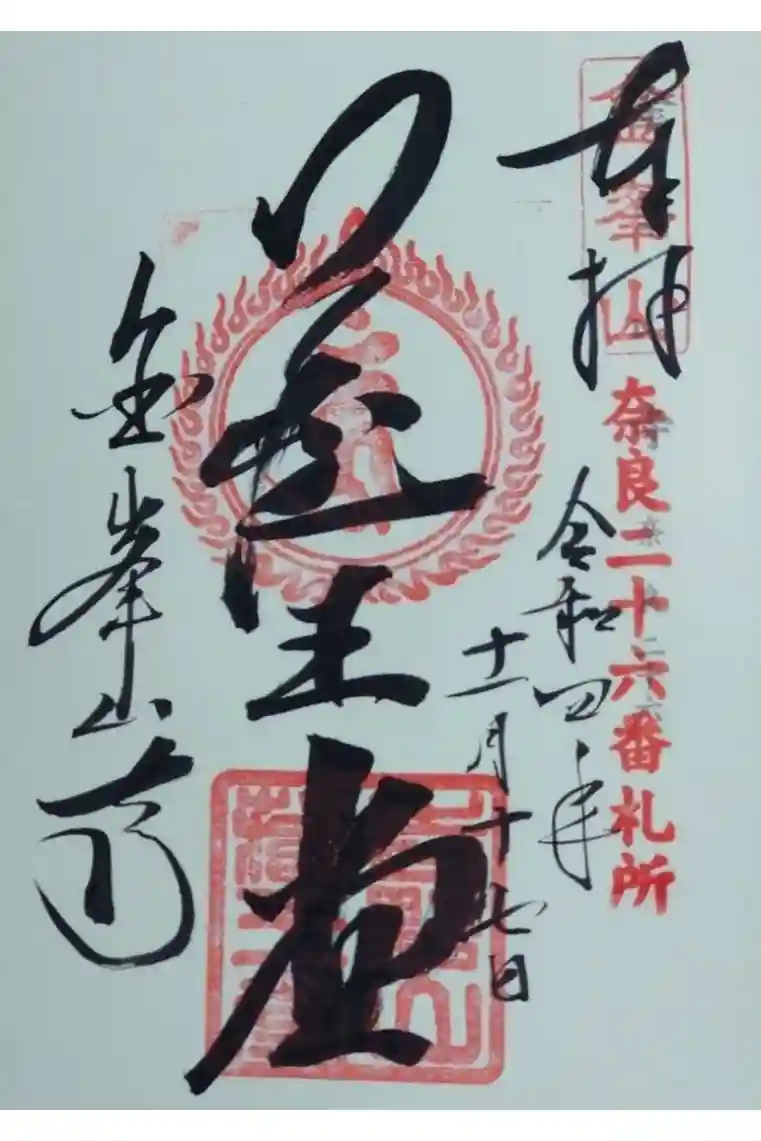 奉拝
金峯山
奈良二十六番札所
令和四年
十一月十七日
蔵王堂
金峯山寺